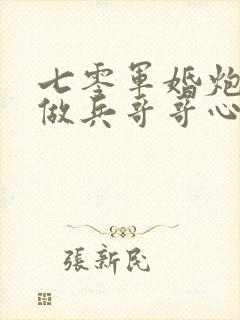 七零軍婚炮
做兵哥哥心
張新民